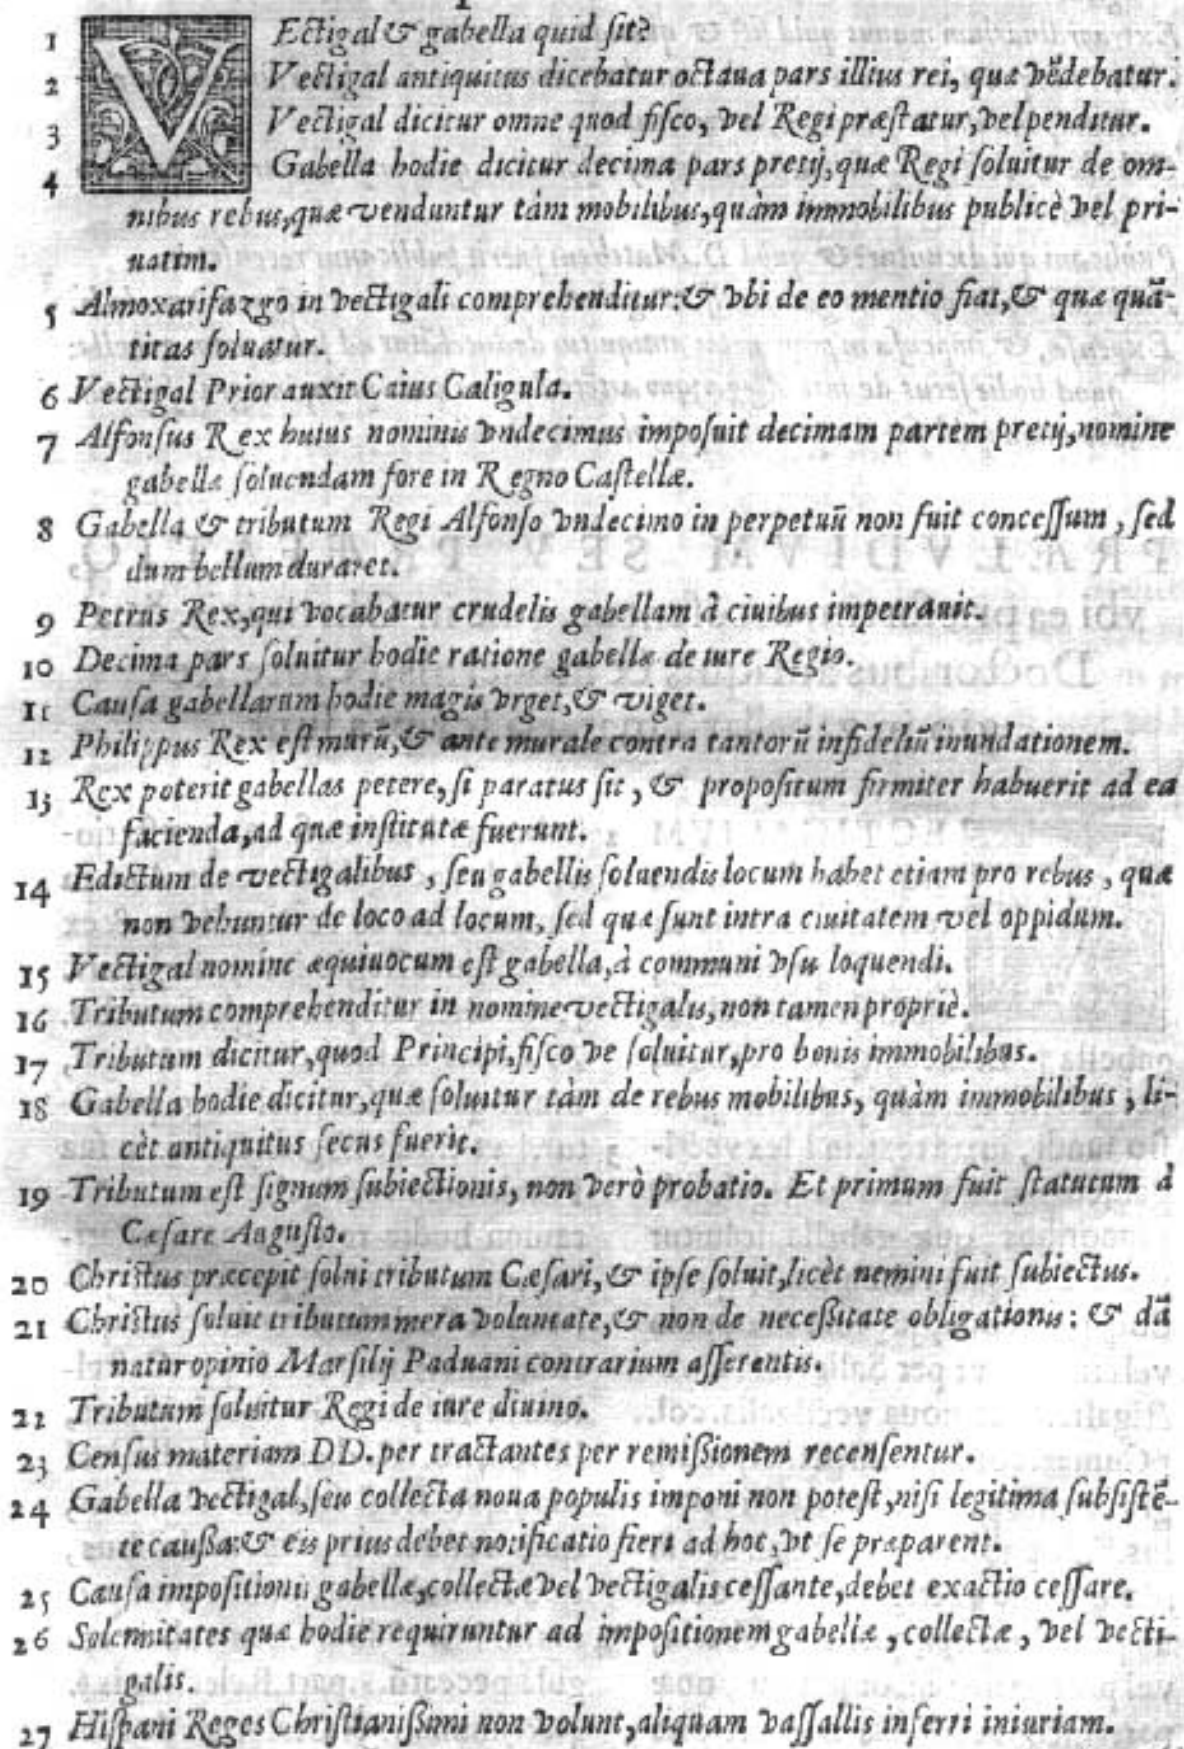 1 VEctigal & gabella quid sit?
2 Vectigal antiquitus dicebatur octaua pars illius rei, quæ vēdebatur.
3 Vectigal dicitur omne quod fisco, vel Regi præstatur, vel penditur.
4 Gabella hodie dicitur decima pars pretij, quæ Regi soluitur de om-
nibus rebus, quæ venduntur tàm mobilibus, quàm immobilibus publicè vel pri-
uatim.
5 Almoxarifazgo in vectigali comprehenditur: & vbi de eo mentio fiat, & quæ quā-
titas soluatur.
6 Vectigal Prior auxit Caius Caligula.
7 Alfonsus Rex huius nominis vndecimus imposuit decimam partem pretij, nomine
gabellæ soluendam fore in Regno Castellæ.
8 Gabella & tributum Regi Alfonso vndecimo in perpetuū non fuit concessum, sed
dum bellum duraret.
9 Petrus Rex, qui vocabatur crudelis gabellam à ciuibus impetrauit.
10 Decima pars soluitur hodie ratione gabellæ de iure Regio.
11 Causa gabellarum hodie magis vrget, & viget.
12 Philippus Rex est murū, & ante murale contra tantorū infideliū inundationem.
13 Rex poterit gabellas petere, si paratus sit, & propositum firmiter habuerit ad ea
facienda, ad quæ institutæ fuerunt.
14 Edictum de vectigalibus, seu gabellis soluendis locum habet etiam pro rebus, quæ
non vehuntur de loco ad locum, sed quæ sunt intra ciuitatem vel oppidum.
15 Vectigal nomine æquiuocum est gabella, à communi vsu loquendi.
16 Tributum comprehenditur in nomine vectigalis, non tamen propriè.
17 Tributum dicitur, quod Principi, fisco ve soluitur, pro bonis immobilibus.
18 Gabella hodie dicitur, quæ soluitur tàm de rebus mobilibus, quàm immobilibus, li-
cèt antiquitus secus fuerit.
19 Tributum est signum subiectionis, non verò probatio. Et primum fuit statutum à
Cæsare Augusto.
20 Christus præcepit solui tributum Cæsari, & ipse soluit, licèt nemini fuit subiectus.
21 Christus soluit tributum mera voluntate, & non de necessitate obligationis: & dā
natur opinio Marsilij Paduani contrarium asserentis.
22 Tributum soluitur Regi de iure diuino.
23 Census materiam DD. per tractantes per remissionem recensentur.
24 Gabella vectigal, seu collecta noua populis imponi non potest, nisi legitima subsistē-
te caussa: & eis prius debet notificatio fieri ad hoc, vt se præparent.
25 Causa impositionis gabellæ, collectæ vel vectigalis cessante, debet exactio cessare.
26 Solennitates quæ hodie requiruntur ad impositionem gabellæ, collectæ, vel vecti-
galis.
27 Hispani Reges Christianissimi non volunt, aliquam vassallis inferri iniuriam.